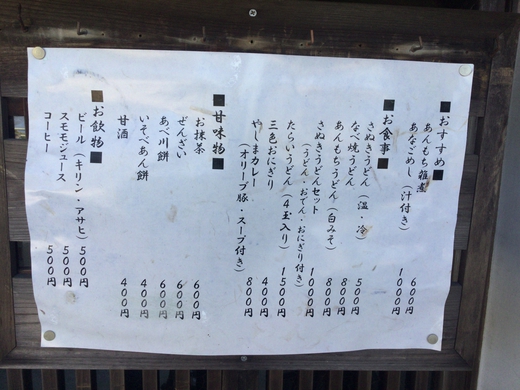 ■おすすめ■
あんもち雑煮 600円
あなごめし(汁付き) 1000円
■お食事■
さぬきうどん(温・冷) 500円
なべ焼うどん 800円
あんもちうどん(白みそ) 800円
さぬきうどんセット 1000円
(うどん・おでん・おにぎり付き)
たらいうどん(4玉入り) 1500円
三色おにぎり 400円
やしまカレー 800円
(オリーブ豚・スープ付き)
■甘味物■
お抹茶 600円
ぜんざい 600円
あべ川餅 600円
いそべあん餅 400円
甘酒 400円
■お飲物■
ビール(キリン・アサヒ) 500円
スモモジュース 500円
コーヒー 500円